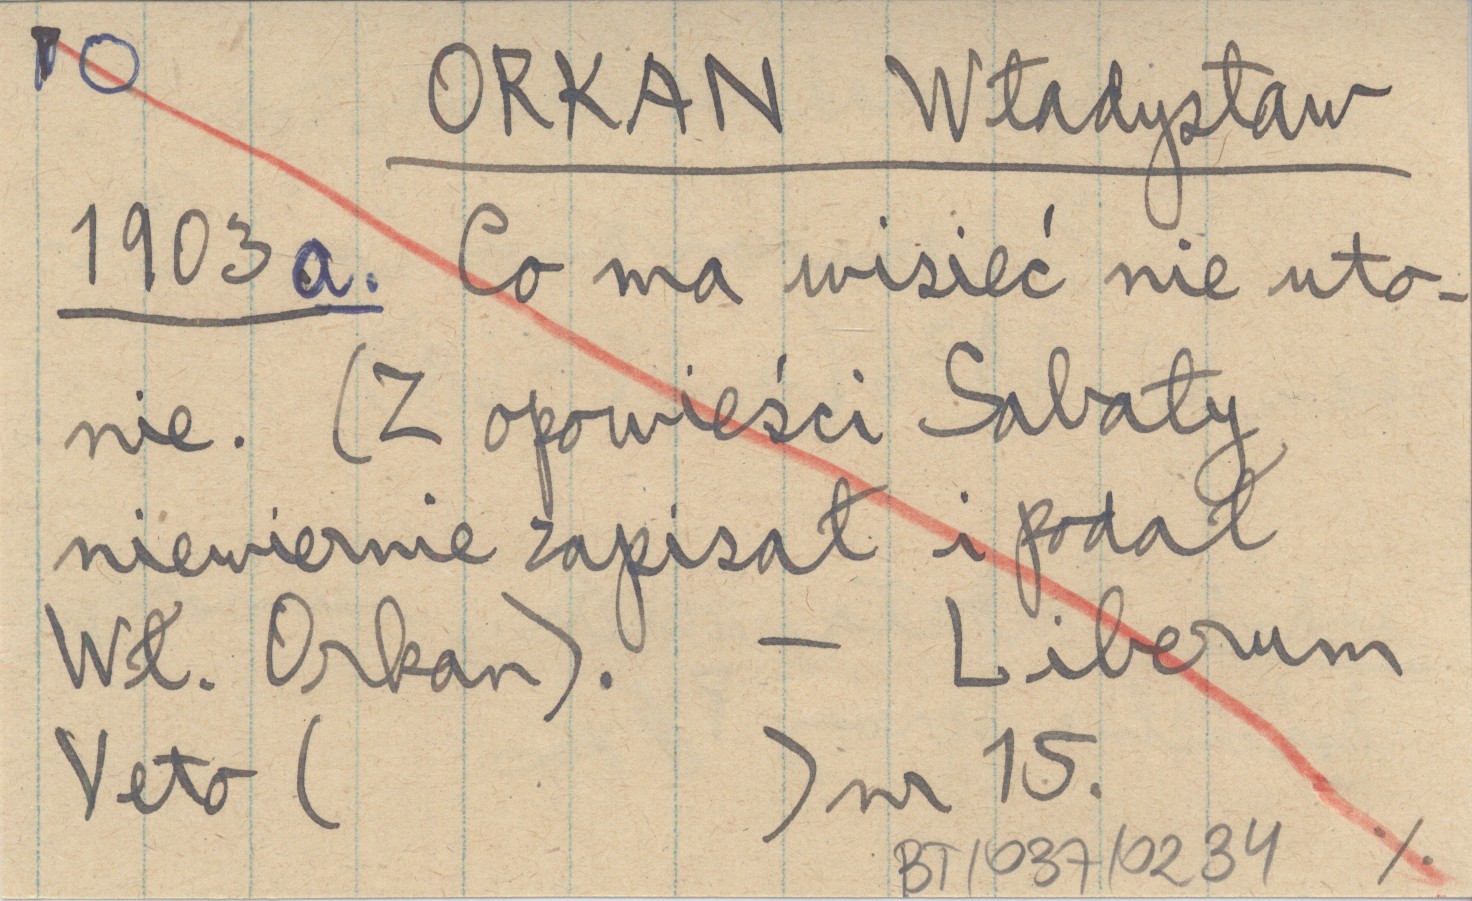 O ORKAN Władysław
1903a. Co ma wisieć nie uto-
nie. (Z opowieści Sabały
niewiernie zapisał i podał
Wł. Orkan). — Liberum
Veto ( ) nr 15.
BT/037/0234 ·/.